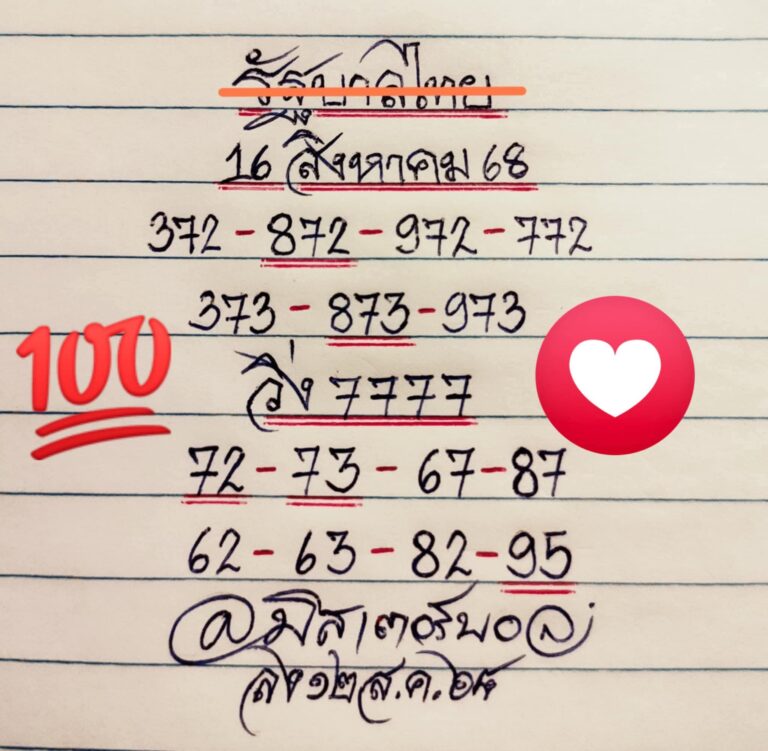 รัฐบาลไทย
16 สิงหาคม 68
372-872-972-772
373-873-973
100
วิ่ง 7777
72-73-67-87
62-63-82-95
@มิสเตอร์บอล
ส่ง๑๒ส.ค.๖๘